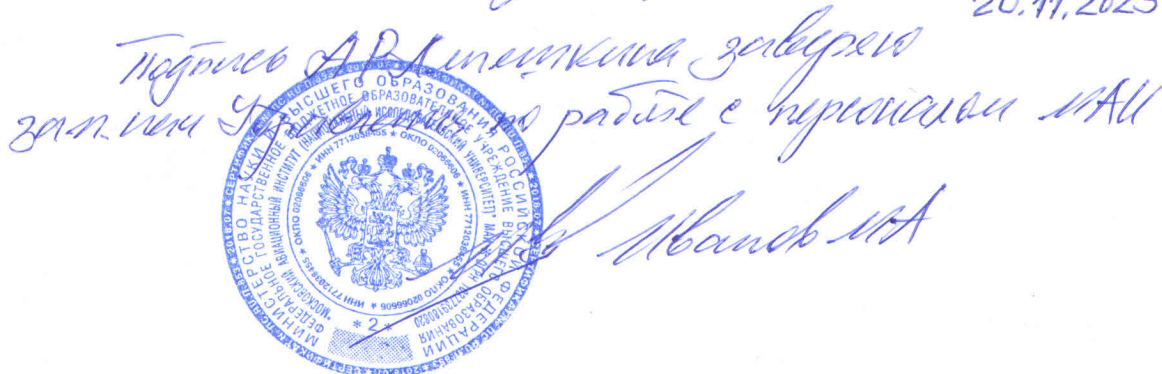 20.11.2023
Подпись А.Р. Лепешкина заверяю
зам. нач Управления по работе с персоналом МАИ
Иванов МА
МИНИСТЕРСТВО НАУКИ И ВЫСШЕГО ОБРАЗОВАНИЯ РОССИЙСКОЙ ФЕДЕРАЦИИ
ФЕДЕРАЛЬНОЕ ГОСУДАРСТВЕННОЕ БЮДЖЕТНОЕ ОБРАЗОВАТЕЛЬНОЕ УЧРЕЖДЕНИЕ ВЫСШЕГО ОБРАЗОВАНИЯ
"МОСКОВСКИЙ АВИАЦИОННЫЙ ИНСТИТУТ (НАЦИОНАЛЬНЫЙ ИССЛЕДОВАТЕЛЬСКИЙ УНИВЕРСИТЕТ)" МАИ
* ИНН 7712038455 * ОКПО 02066606 * ИНН 7712038455 * ОКПО 02066606 * ИНН 7712038455 * ОКПО 02066606
* 2 *